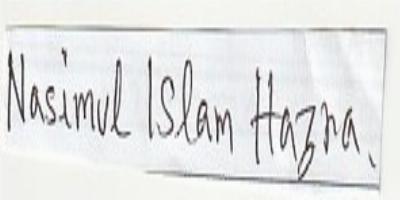 Nasimul Islam Hazra.